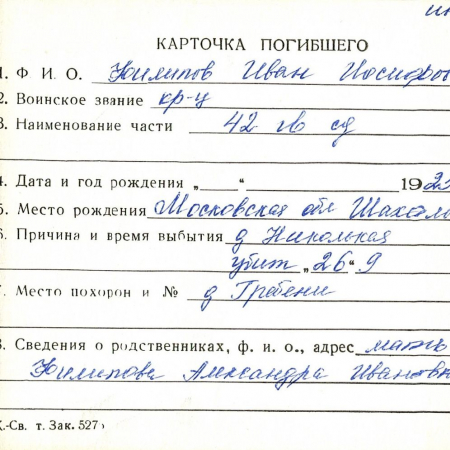 КАРТОЧКА ПОГИБШЕГО
1. Ф И. О. Филипов Иван Иосифов
2. Воинское звание кр-ц
3. Наименование части 42 гв сд
4. Дата и год рождения „ “ 1923
5. Место рождения Московская обл Шахов
6. Причина и время выбытия д Никольская
убит „26“ 9
7. Место похорон и № д Гребени
8. Сведения о родственниках, ф. и. о., адрес мать
Филипова Александра Ивановн
К.-Св. т. Зак. 527